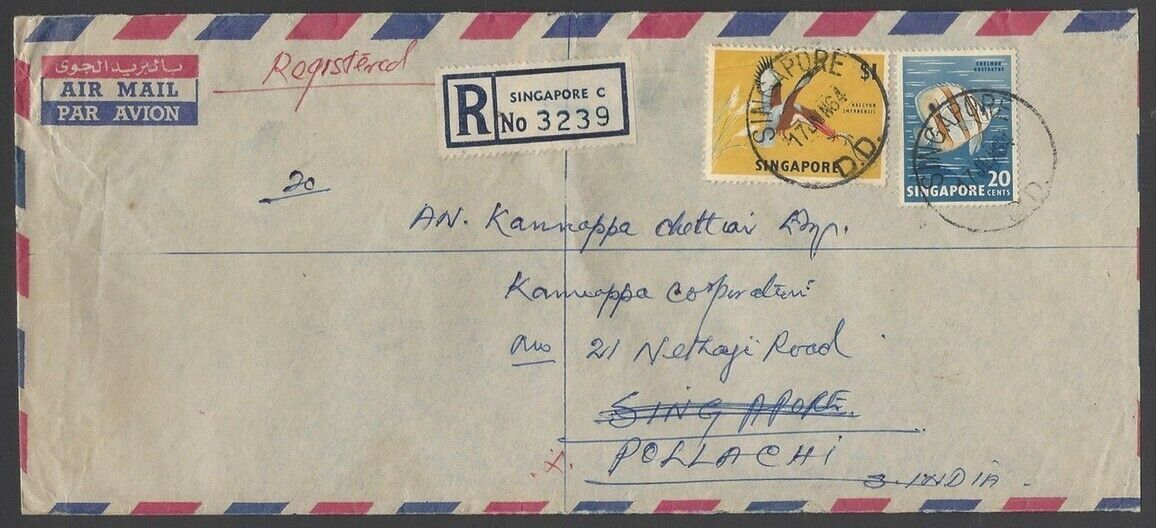 بالبريد الجوى
AIR MAIL
PAR AVION
Registered
R
SINGAPORE C
No 3239
$1
HALCYON
SMYRNENSIS
SINGAPORE
SINGAPORE
17 JUN 64
D.D.
CHELMON
ROSTRATUS
SINGAPORE 20
CENTS
SINGAPORE
D.D.
To
AN. Kannappa Chettiar Esqr.
Kannappa Corporation
No 21 Nethaji Road
SINGAPORE.
POLLACHI
S. INDIA.